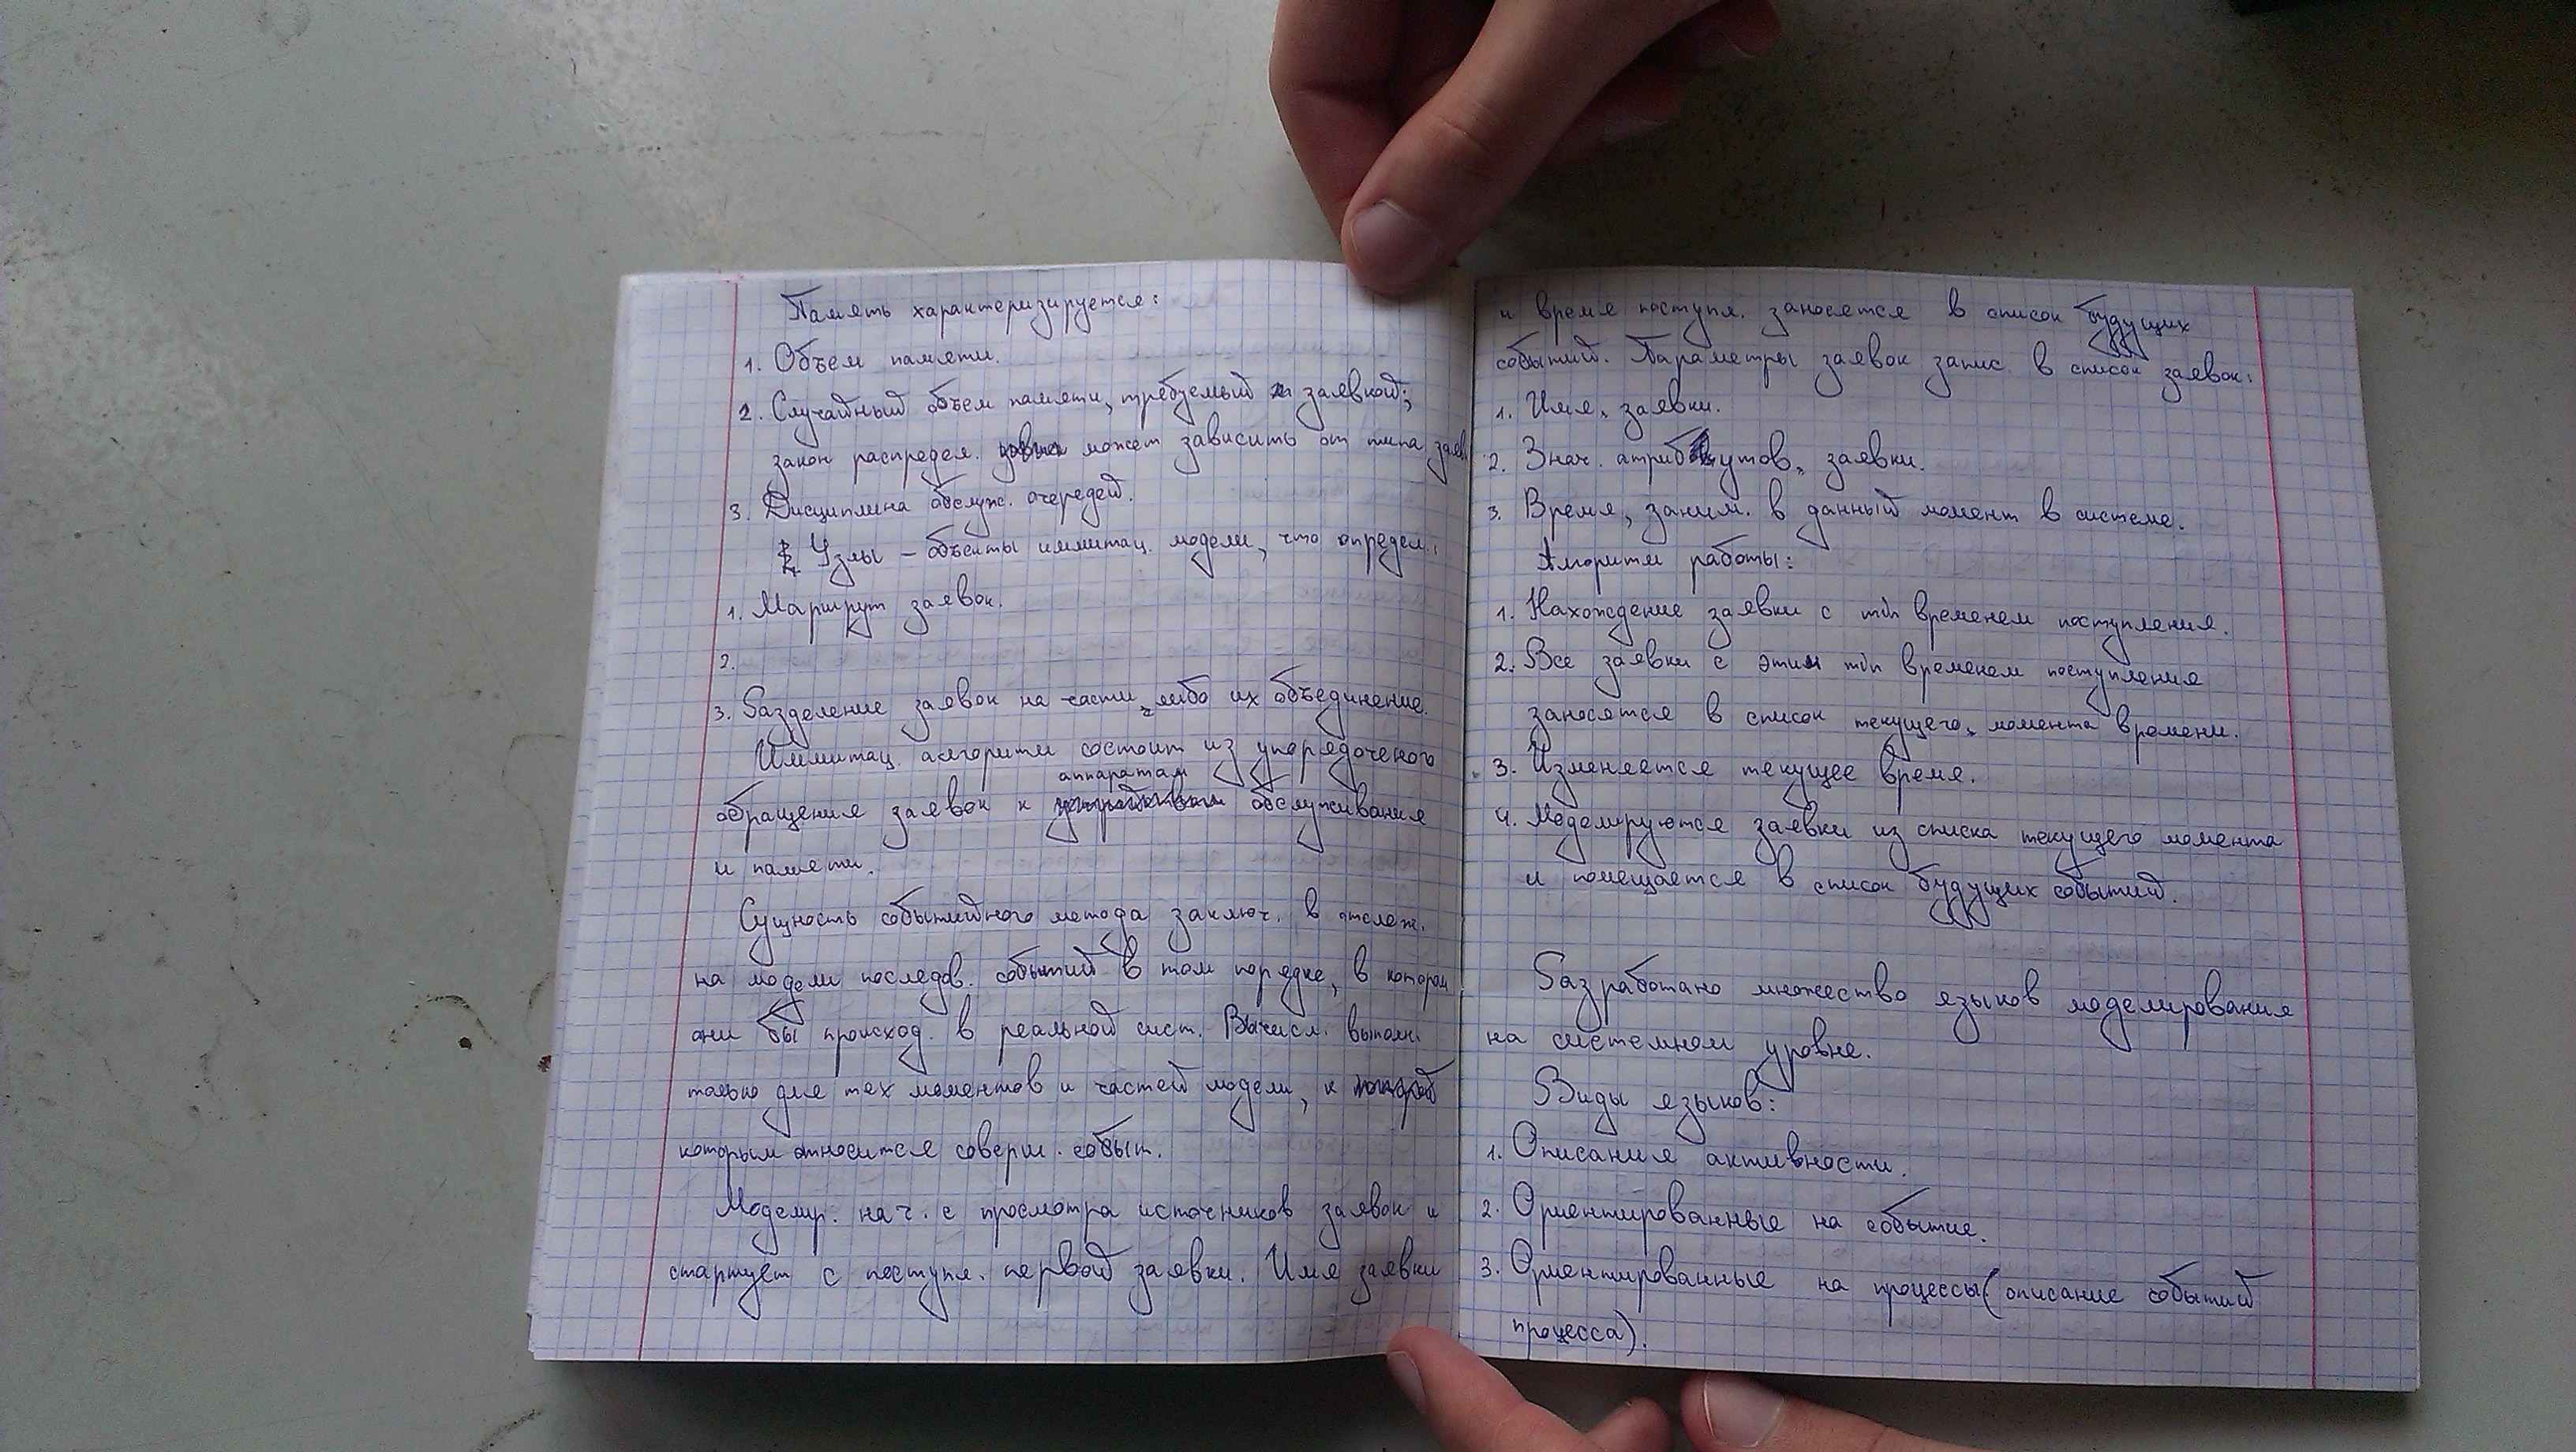 Память характеризируется:
1. Объем памяти.
2. Случайный объем памяти, требуемый заявкой;
закон распредел. может зависить от типа заяв
3. Дисциплина обслуж. очередей.
Узлы – объекты иммитац. модели, что определ.:
1. Маршрут заявок.
2.
3. Разделение заявок на части, либо их объединение.
Иммитац. алгоритм состоит из упорядоченого
аппаратам
обращения заявок к обслуживания
и памяти.
Сущность событийного метода заключ. в отслеж.
на модели последов. событий в том порядке, в котором
они бы происход. в реальной сист. Вычисл. выполн.
только для тех моментов и частей модели, к
которым относится соверш. событ.
Моделир. нач. с просмотра источников заявок и
стартует с поступл. первой заявки. Имя заявки
и время поступл. заносятся в список будущих
событий. Параметры заявок запис. в список заявок:
1. Имя заявки.
2. Знач. атрибутов заявки.
3. Время, заним. в данный момент в системе.
Алгоритм работы:
1. Нахождение заявки с min временем поступления.
2. Все заявки с этим min временем поступления
заносятся в список текущего момента времени.
3. Изменяется текущее время.
4. Моделируются заявки из списка текущего момента
и помещается в список будущих событий.
Разработано множество языков моделирования
на системном уровне.
Виды языков:
1. Описания активности.
2. Ориентированные на событие.
3. Ориентированные на процессы (описание событий
процесса).